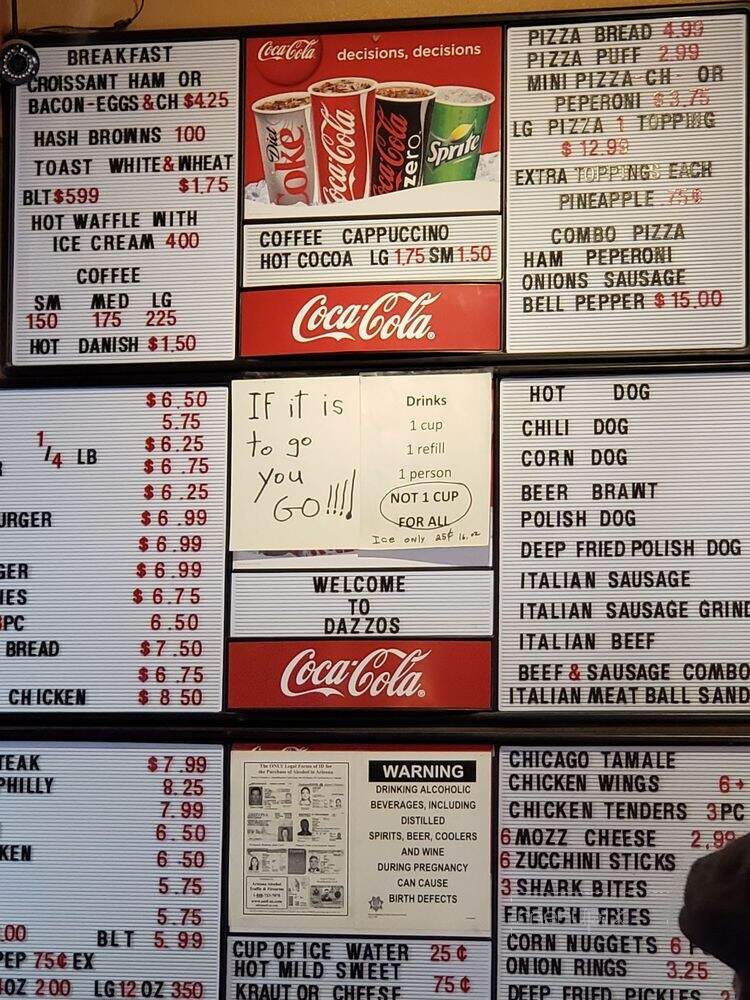 BREAKFAST
CROISSANT HAM OR
BACON-EGGS & CH $4.25
HASH BROWNS 100
TOAST WHITE & WHEAT
$1.75
BLT $599
HOT WAFFLE WITH
ICE CREAM 400
COFFEE
SM MED LG
150 175 225
HOT DANISH $1.50
Coca-Cola decisions, decisions
Diet Coke
Coca-Cola
Coca-Cola zero
Sprite
COFFEE CAPPUCCINO
HOT COCOA LG 1.75 SM 1.50
Coca-Cola
PIZZA BREAD 4.99
PIZZA PUFF 2.99
MINI PIZZA-CH- OR
PEPERONI $3.75
LG PIZZA 1 TOPPING
$12.99
EXTRA TOPPINGS EACH
PINEAPPLE .75¢
COMBO PIZZA
HAM PEPERONI
ONIONS SAUSAGE
BELL PEPPER $15.00
$6.50
5.75
1/4 LB $6.25
$6.75
$6.25
URGER $6.99
$6.99
GER $6.99
IES $6.75
PC 6.50
BREAD $7.50
$6.75
CHICKEN $8 50
IF it is
to go
you
GO!!!!
Drinks
1 cup
1 refill
1 person
NOT 1 CUP
FOR ALL
Ice only 25¢ 16.oz
WELCOME
TO
DAZZOS
Coca-Cola
HOT DOG
CHILI DOG
CORN DOG
BEER BRAWT
POLISH DOG
DEEP FRIED POLISH DOG
ITALIAN SAUSAGE
ITALIAN SAUSAGE GRIND
ITALIAN BEEF
BEEF & SAUSAGE COMBO
ITALIAN MEAT BALL SAND
TEAK $7.99
PHILLY 8.25
7.99
6.50
KEN 6.50
5.75
5.75
.00 BLT 5.99
PEP 75¢ EX
4OZ 2 00 LG 12 OZ 350
The ONLY Legal Forms of ID for
the Purchase of Alcohol in Arizona
WARNING
DRINKING ALCOHOLIC
BEVERAGES, INCLUDING
DISTILLED
SPIRITS, BEER, COOLERS
AND WINE
DURING PREGNANCY
CAN CAUSE
BIRTH DEFECTS
CUP OF ICE WATER 25¢
HOT MILD SWEET
KRAUT OR CHEESE 75¢
CHICAGO TAMALE
CHICKEN WINGS 6+
CHICKEN TENDERS 3PC
6 MOZZ CHEESE 2.99
6 ZUCCHINI STICKS
3 SHARK BITES
FRENCH FRIES
CORN NUGGETS 6
ONION RINGS 3.25
DEEP FRIED PICKLES